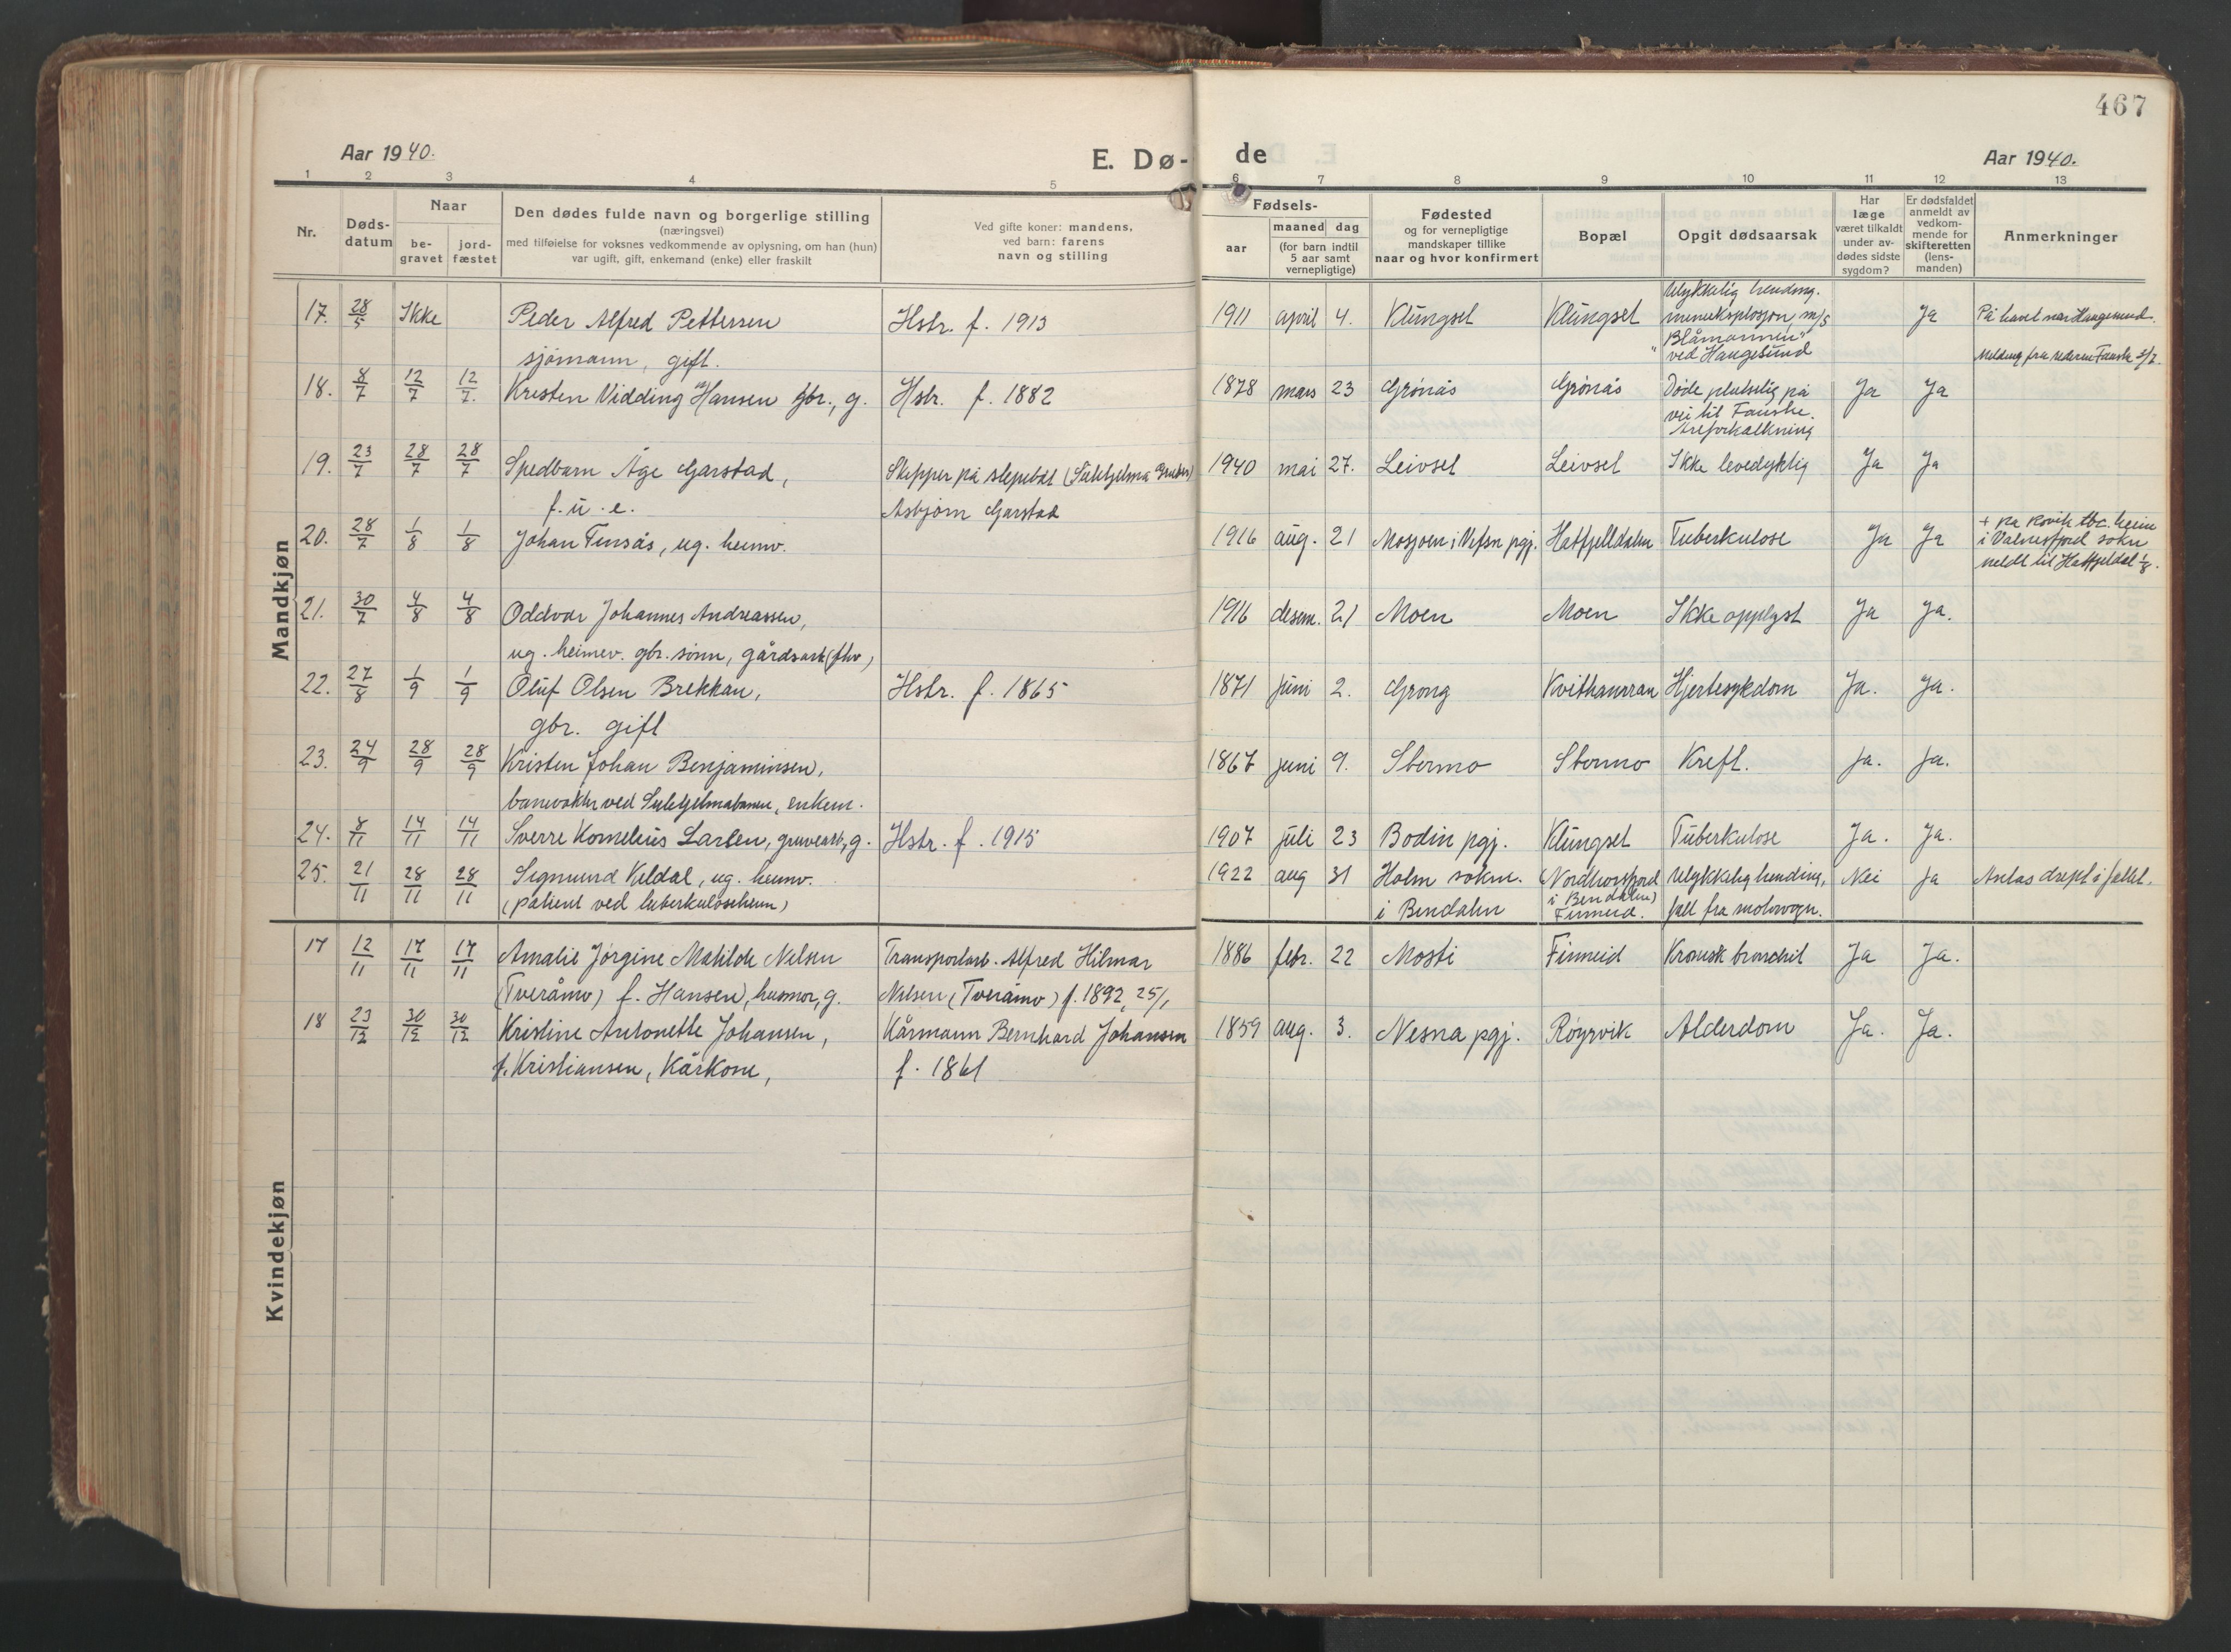 467
Aar 1940.
E. Dø-
de
Aar 1940.
1 2 3 4 5 6 7 8 9 10 11 12 13
Nr.
Døds-
datum
Naar
be-
gravet
jord-
fæstet
Den dødes fulde navn og borgerlige stilling
(næringsvei)
med tilføielse for voksnes vedkommende av oplysning, om han (hun)
var ugift, gift, enkemand (enke) eller fraskilt
Ved gifte koner: mandens,
ved barn: farens
navn og stilling
Fødsels-
aar
maaned dag
(for barn indtil
5 aar samt
vernepligtige)
Fødested
og for vernepligtige
mandskaper tillike
naar og hvor konfirmert
Bopæl
Opgit dødsaarsak
Har
læge
været tilkaldt
under av-
dødes sidste
sygdom?
Er dødsfaldet
anmeldt av
vedkom-
mende for
skifteretten
(lens-
manden)
Anmerkninger
Mandkjøn
17. 28/5 Ikke Peder Alfred Pettersen Hstr. f. 1913 1911 april 4. Klungset Klungset Ulykkelig hending. Ja På havet nær Haugesund.
mineeksplosjon, m/s
"Blåmannen"
sjømann, gift. ved Haugesund Melding fra rederen Fauske
18. 8/7 12/7 12/7. Kristen Vidding Hansen gbr., g. Hstr. f. 1882 1878 mars 23 Grønås Grønås Døde plutselig på Ja Ja
vei til Fauske.
Åreforkalkning
19. 23/7 28/7 28/7 Spedbarn Åge Garstad, Skipper på slepebåt (Sulitjelma Gruber) 1940 mai 27. Leivset Leivset Ikke levedyktig Ja Ja
f. u. e. Asbjørn Garstad
20. 28/7 1/8 1/8 Johan Tensås, ug. heimv. 1916 aug. 21 Mosjøen i Vefsn pgj. Hatfjelldalen Tuberkulose Ja Ja + på tbc. heim
i Valnesfjord sokn
meldt til Hatfjeldal 1/8.
21. 30/7 4/8 4/8 Oddvar Johannes Andreassen, 1916 desem. 21 Moen Moen Ikke opplyst Ja Ja.
ug. heimev. gbr. sønn, gårdsarb (fhv)
22. 27/8 1/9 1/9 Oluf Olsen Brekkan, Hstr. f. 1865 1871 juni 2. Grong Kvithammran Hjertesykdom Ja. Ja.
gbr. gift
23. 24/9 28/9 28/9 Kristen Johan Benjaminsen, 1867 juni 9. Stormo Stormo Kreft. Ja. Ja.
banevokter ved Sulitjelmabanen, enkem.
24. 8/11 14/11 14/11 Sverre Kornelius Larsen, gruvearb., g. Hstr. f. 1915 1907 juli 23 Bodin pgj. Klungset Tuberkulose Ja. Ja.
25. 21/11 28/11 28/11 Sigmund Kildal, ug. heimv. 1922 aug 31 Holm sokn. (Nordhorsfjord Ulykkelig hending, Nei Ja Antas drept i fallet.
(patient ved tuberkuloseheim) i Bindalen i Bindalen) Finneid. fall fra motorvogn.
Kvindekjøn
17 12/11 17/11 17/11 Amalie Jørgine Matilde Nilsen Transportarb. Alfred Hilmar 1886 febr. 22 Mosti Finneid Kronisk bronchit Ja Ja.
(Tveråmo) f. Hansen, husmor, g. Nilsen (Tveråmo) f. 1892, 25/1
18 23/12 30/12 30/12 Kristine Antonette Johansen, Kårmann Bernhard Johansen 1859 aug. 3. Nesna pgj. Røyrvik Alderdom Ja. Ja.
f. Kristiansen, Kårkone, f. 1861